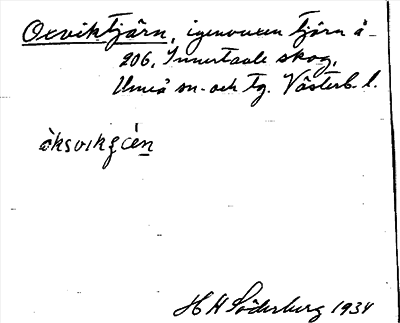 Oxviktjärn, igenvuxen tjärn å
206, Innertavle skog,
Umeå sn. och tg. Västerb. l.
òksvikʃcén
H H Söderberg 1934